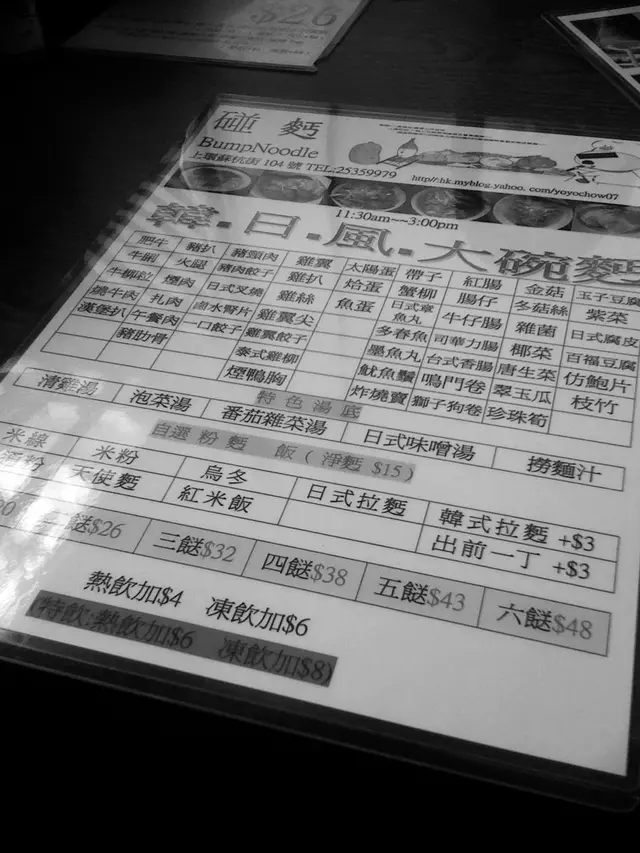 $26
碰麵
BumpNoodle
上環蘇杭街 104 號 TEL:25359979
http://hk.myblog.yahoo.com/yoyochow07
11:30am~~3:00pm
韓.日.風.大碗麵
肥牛 豬扒 豬頸肉 雞翼 太陽蛋 帶子 紅腸 金菇 玉子豆腐
牛脷 火腿 豬肉餃子 雞扒 烚蛋 蟹柳 腸仔 冬菇絲 紫菜
牛柳粒 煙肉 日式叉燒 雞絲 魚蛋 日式章魚丸 牛仔腸 雜菌 日式腐皮
燒牛肉 扎肉 鹵水腎片 雞翼尖 多春魚 司華力腸 椰菜 百福豆腐
漢堡扒 午餐肉 一口餃子 雞翼餃子 墨魚丸 台式香腸 唐生菜 仿鮑片
豬肋骨 泰式雞柳 魷魚鬚 鳴門卷 翠玉瓜 枝竹
煙鴨胸 炸燒賣 獅子狗卷 珍珠筍
特色湯底
清雞湯 泡菜湯 番茄雜菜湯 日式味噌湯 撈麵汁
自選粉麵 飯 ( 淨麵 $15 )
米線 米粉 烏冬 日式拉麵 韓式拉麵 +$3
粉 天使麵 紅米飯 出前一丁 +$3
二餸$26 三餸$32 四餸$38 五餸$43 六餸$48
熱飲加$4 凍飲加$6
(特飲:熱飲加$6 凍飲加$8)